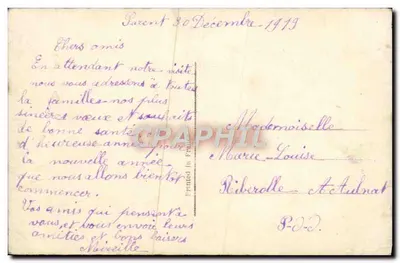 Parent 30 Décembre 1919
Chers amis
En attendant notre visite
nous vous adressons à toutes
la familles nos plus
sincères vœux et souhaits
de bonne santé
d'heureuse année pour
la nouvelle année
que nous allons bientôt
commencer.
Vos amis qui pensent à
vous et vous envoie leurs
amitiés et bons baisers
Mireille
Printed in France
Mademoiselle
Marie-Louise
Riberolle - A Aulnat
P-d-D.
CARTHAGRAPHIC